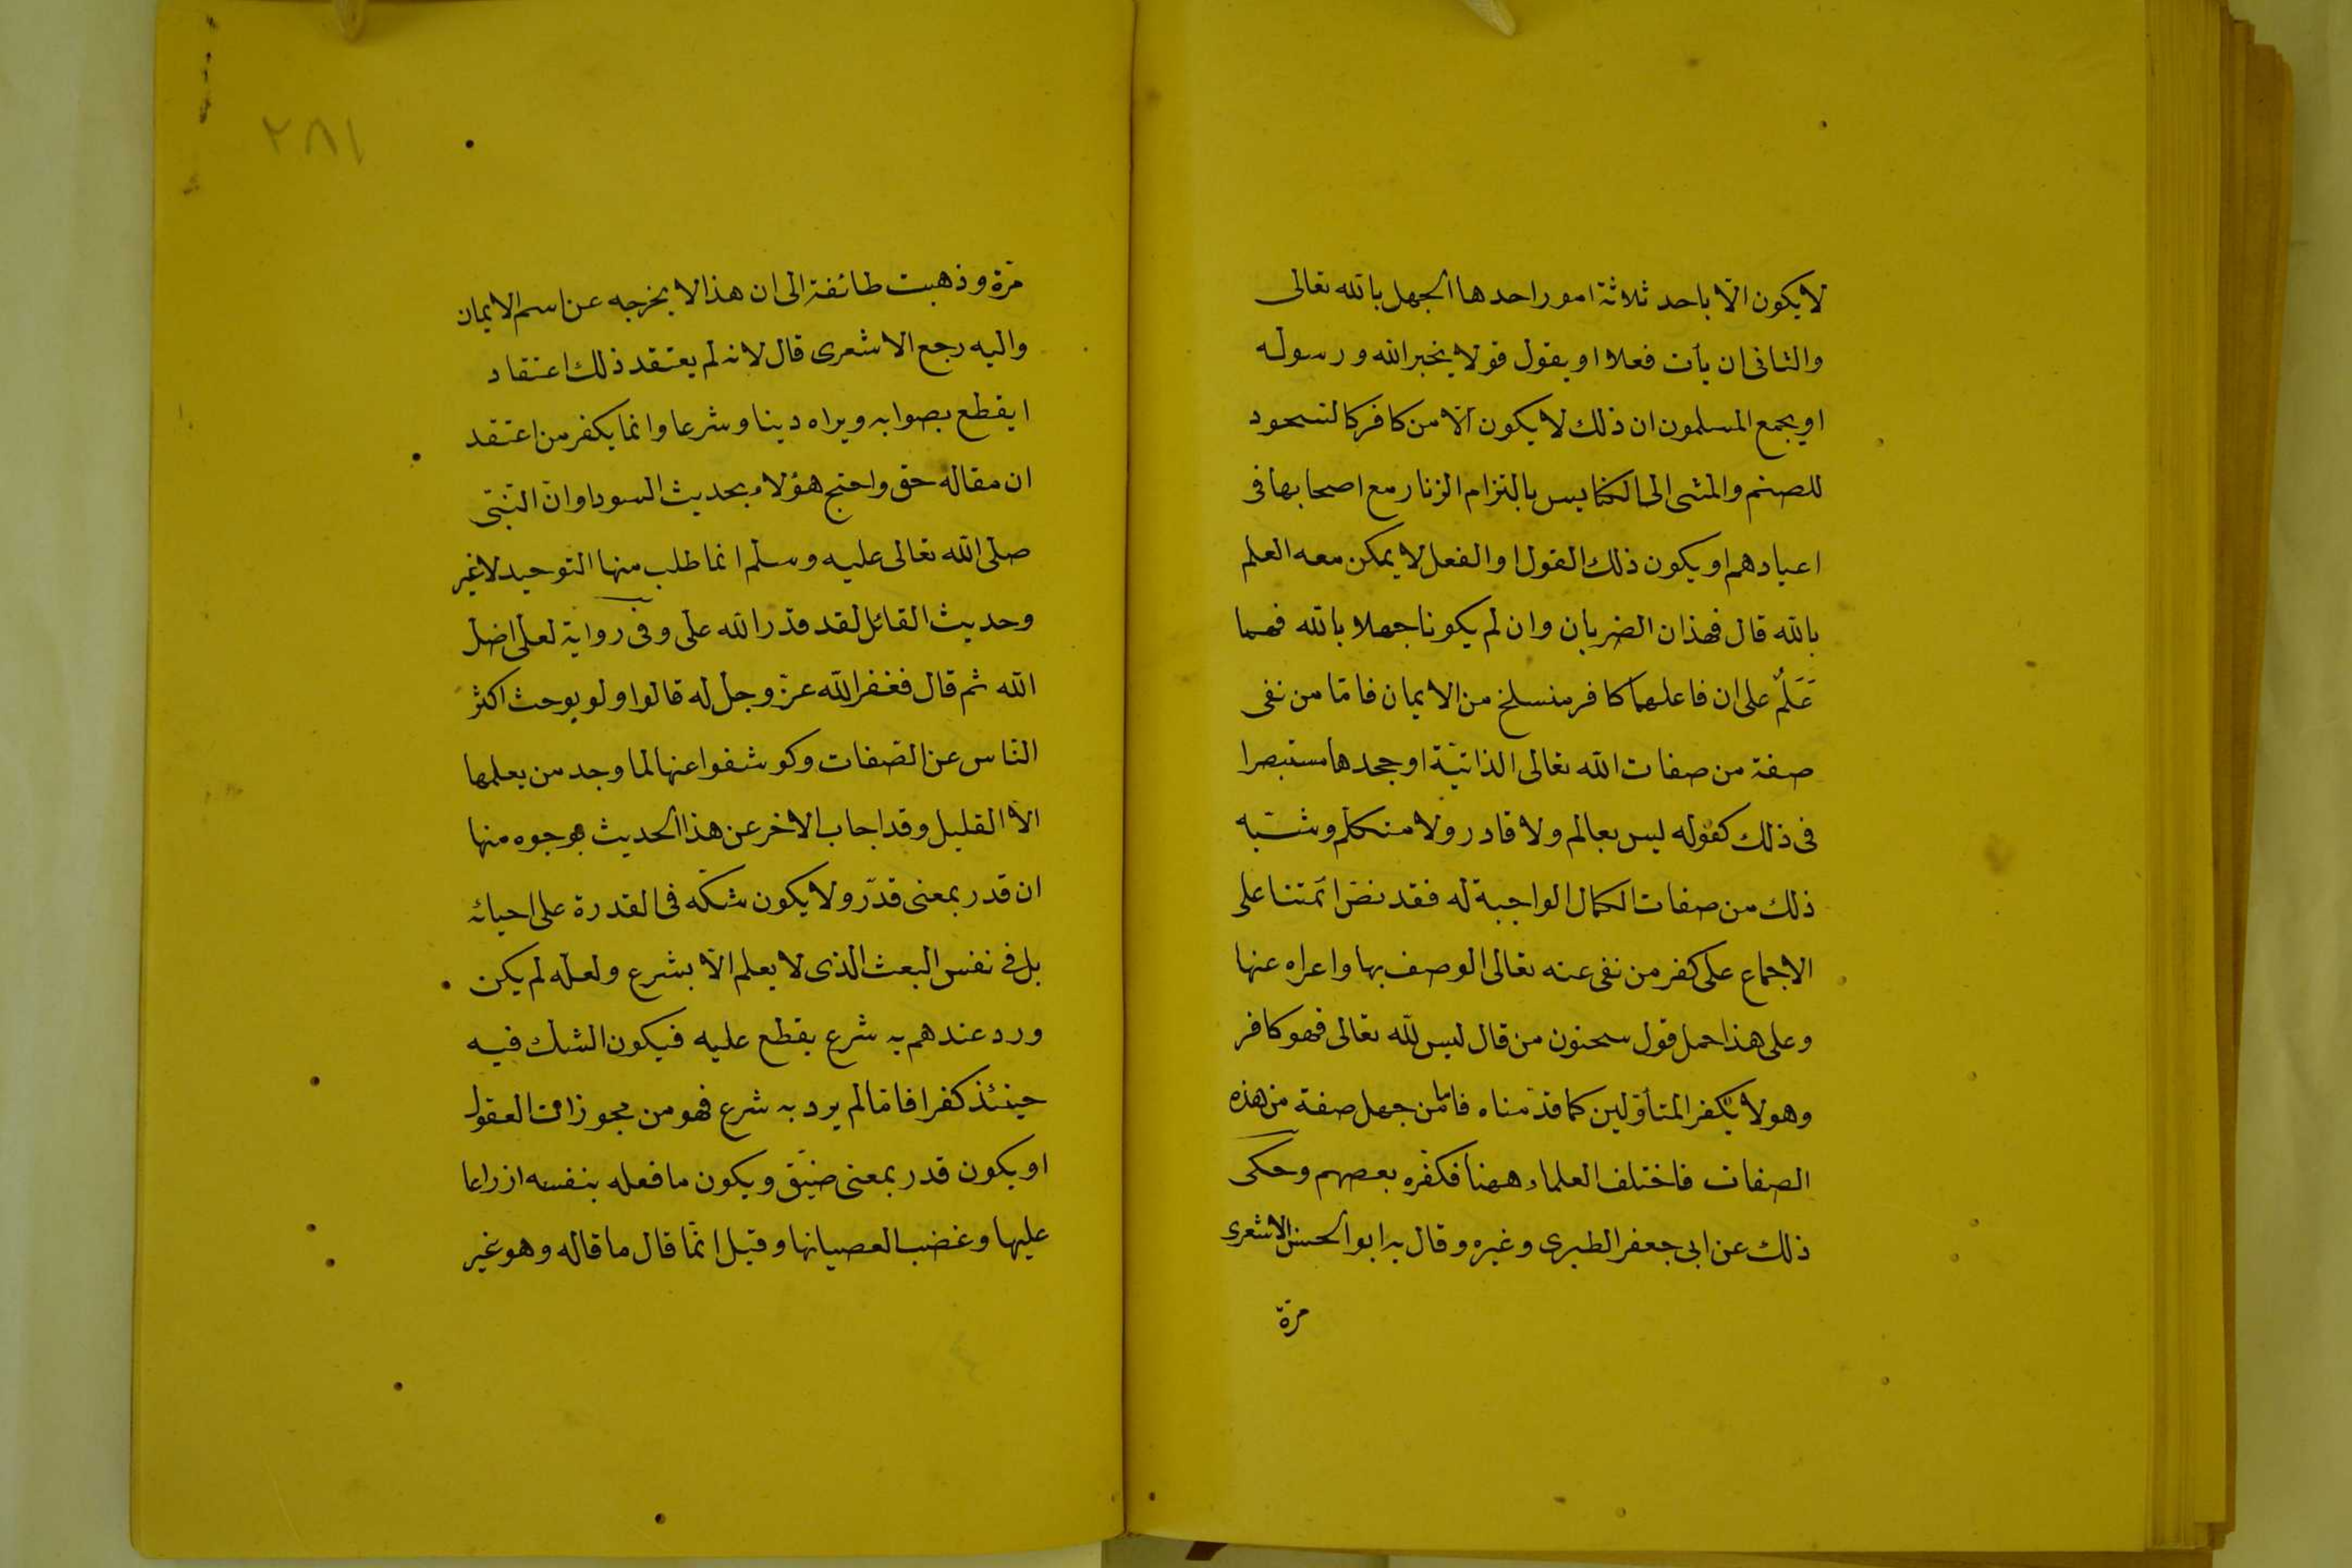 لا يكون الا باحد ثلاثة امور احدها الجهل بالله تعالى
والثانى ان يأت فعلا او يقول قولا يخبر الله ورسوله
او يجمع المسلمون ان ذلك لا يكون الا من كافر كالسجود
للصنم والمشى الى الكنايس بالتزام الزنار مع اصحابها فى
اعيادهم او يكون ذلك القول او الفعل لا يمكن معه العلم
بالله قال فهذان الضربان وان لم يكونا جهلا بالله فهما
عَلَمٌ على ان فاعلهما كافر منسلخ من الايمان فامّا من نفى
صفة من صفات الله تعالى الذاتيّة او جحدها مستبصرا
فى ذلك كقوله ليس بعالم ولا قادر ولا متكلم وشبه
ذلك من صفات الكمال الواجبة له فقد نصّ ائمتنا على
الاجماع على كفر من نفى عنه تعالى الوصف بها واعراه عنها
وعلى هذا حمل قول سحنون من قال ليس لله تعالى فهو كافر
وهو لا يكفر المتأوّلين كما قدّمناه فامّا من جهل صفة من هذه
الصفات فاختلف العلماء ههنا فكفّره بعضهم وحكى
ذلك عن ابى جعفر الطبرى وغيره وقال به ابو الحسن الاشعرى
مرّة
٢٨١
مرّة وذهبت طائفة الى ان هذا لا يخرجه عن اسم الايمان
واليه رجع الاشعرى قال لانه لم يعتقد ذلك اعتقاد
ا يقطع بصوابه ويراه دينا وشرعا وانما يكفر من اعتقد
ان مقاله حق واحتج هؤلاء بحديث السودا وانّ النّبىّ
صلى الله تعالى عليه وسلم انما طلب منها التوحيد لاغير
وحديث القائل لقد قدّر الله على وفى رواية لعلى اضل
الله ثم قال فغفر الله عزّ وجل له قالوا ولو بوحث اكثر
النّاس عن الصّفات وكوشفوا عنها لما وجد من يعلمها
الا القليل وقد اجاب الاخر عن هذا الحديث بوجوه منها
ان قدر بمعنى قدّر ولا يكون شكّه فى القدرة على احيائه
بل فى نفس البعث الذى لا يعلم الا بشرع ولعله لم يكن
ورد عندهم به شرع يقطع عليه فيكون الشك فيه
حينئذ كفرا فامّا لم يرد به شرع فهو من مجوزات العقول
او يكون قدر بمعنى ضيّق ويكون ما فعله بنفسه ازراءا
عليها وغضبا لعصيانها وقيل انّما قال ما قاله وهو غير